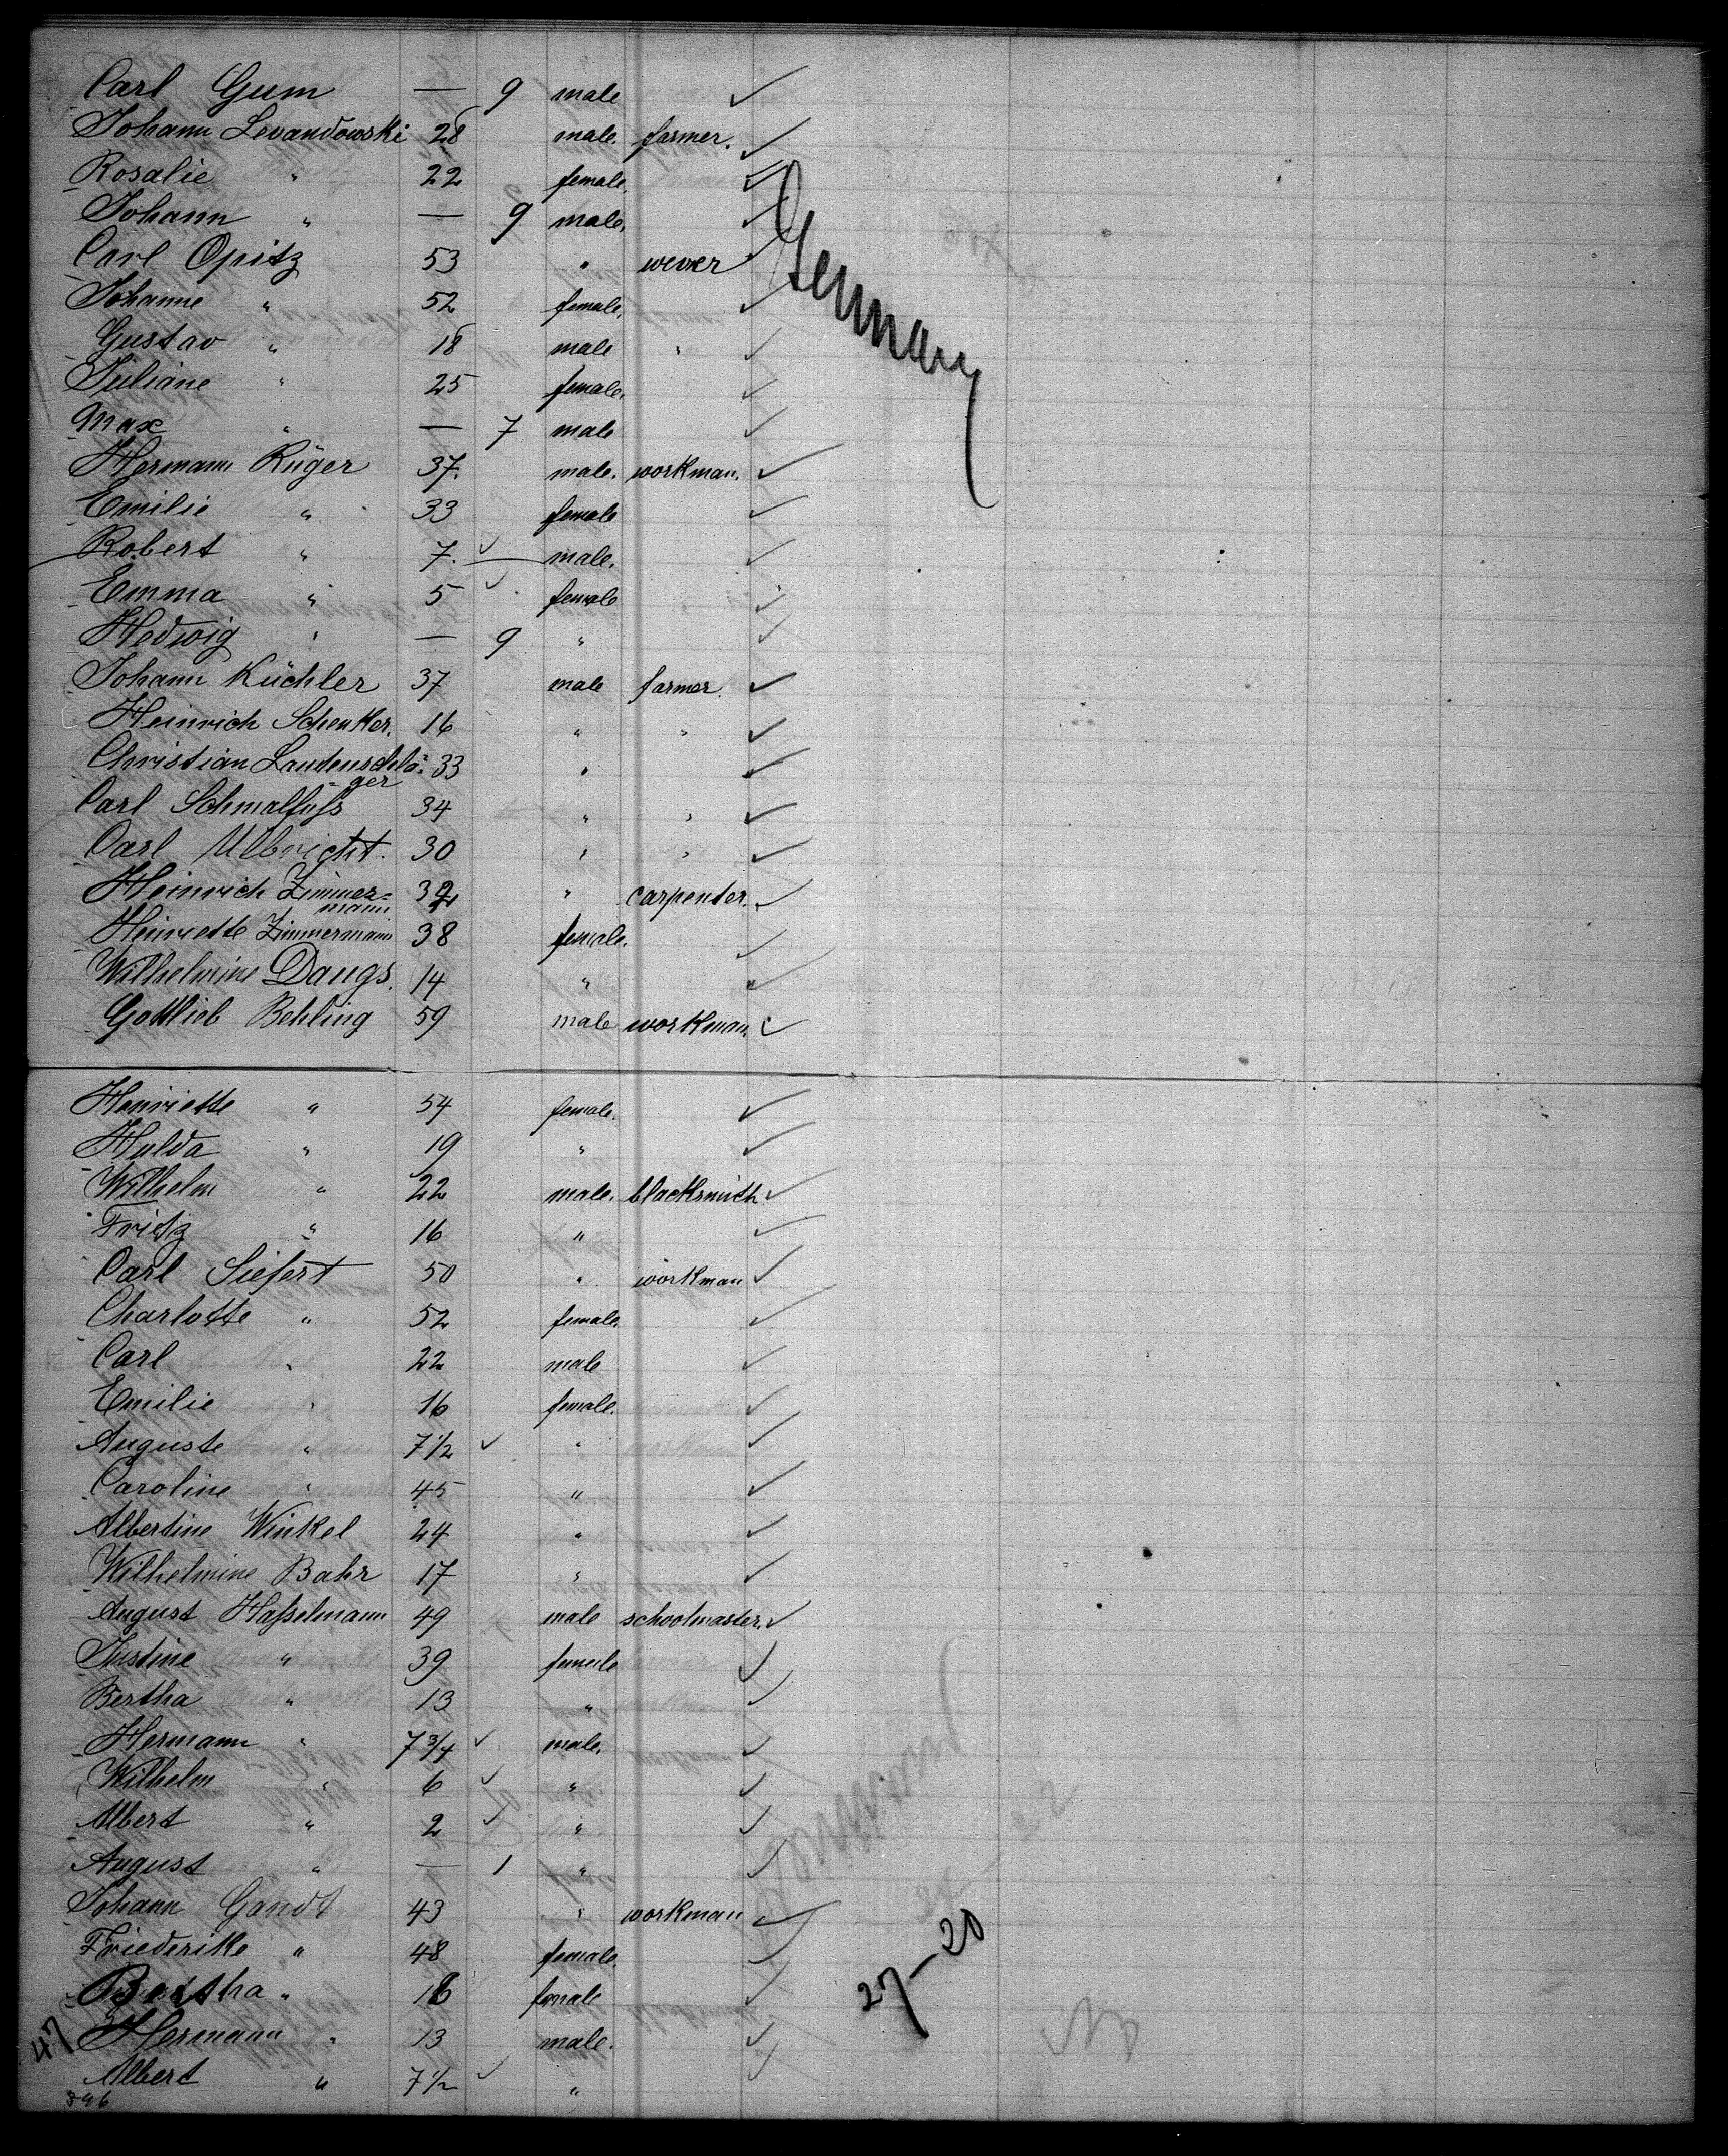 Carl Gum — 9 male ✓
Johann Levandowski 28 male. farmer. ✓
Rosalie " 22 female. ✓
Johann " — 9 male. ✓
Carl Opitz 53 " wever ✓
Johanne " 52 female. ✓
Gustav " 18 male " ✓
Juliane " 25 female. ✓
Max " — 7 male ✓
Hermann Rüger 37. male. workman. ✓
Emilie " 33 female ✓
Robert " 7. ✓ male. ✓
Emma " 5 ✓ female ✓
Hedwig " — 9 " ✓
Johann Küchler 37 male farmer. ✓
Heinrich Schenker. 16 " " ✓
Christian Lautenschlä- 33 " ✓
ger
Carl Schmalfuß 34 " " ✓
Carl Ulbricht. 30 " " ✓
Heinrich Zimmer= 32 " carpenter. ✓
mann
Henriette Zimmermann 38 female. ✓
Wilhelmine Daugs. 14 " " ✓
Gottlieb Behling 59 male workman. ✓
Germany
Henriette " 54 female. ✓
Hulda " 19 " ✓
Wilhelm " 22 male. blacksmith ✓
Fritz " 16 " ✓
Carl Siefert 50 " workman ✓
Charlotte " 52 female. ✓
Carl " 22 male ✓
Emilie " 16 female. ✓
Auguste " 7 1/2 ✓ " ✓
Caroline " 45 " ✓
Albertine Winkel 24 " ✓
Wilhelmine Bahr 17 " ✓
August Haßelmann 49 male schoolmaster. ✓
Justine " 39 female ✓
Bertha " 13 " ✓
Hermann " 7 3/4 ✓ male. ✓
Wilhelm " 6 ✓ " ✓
Albert " 2 ✓ " ✓
August " — 1 " ✓
Johann Gandt 43 " workman ✓
Friederike " 48 female. ✓
Bertha " 16 female ✓
Hermann " 13 male. ✓
Albert " 7 1/2 ✓ " ✓
27-20
47